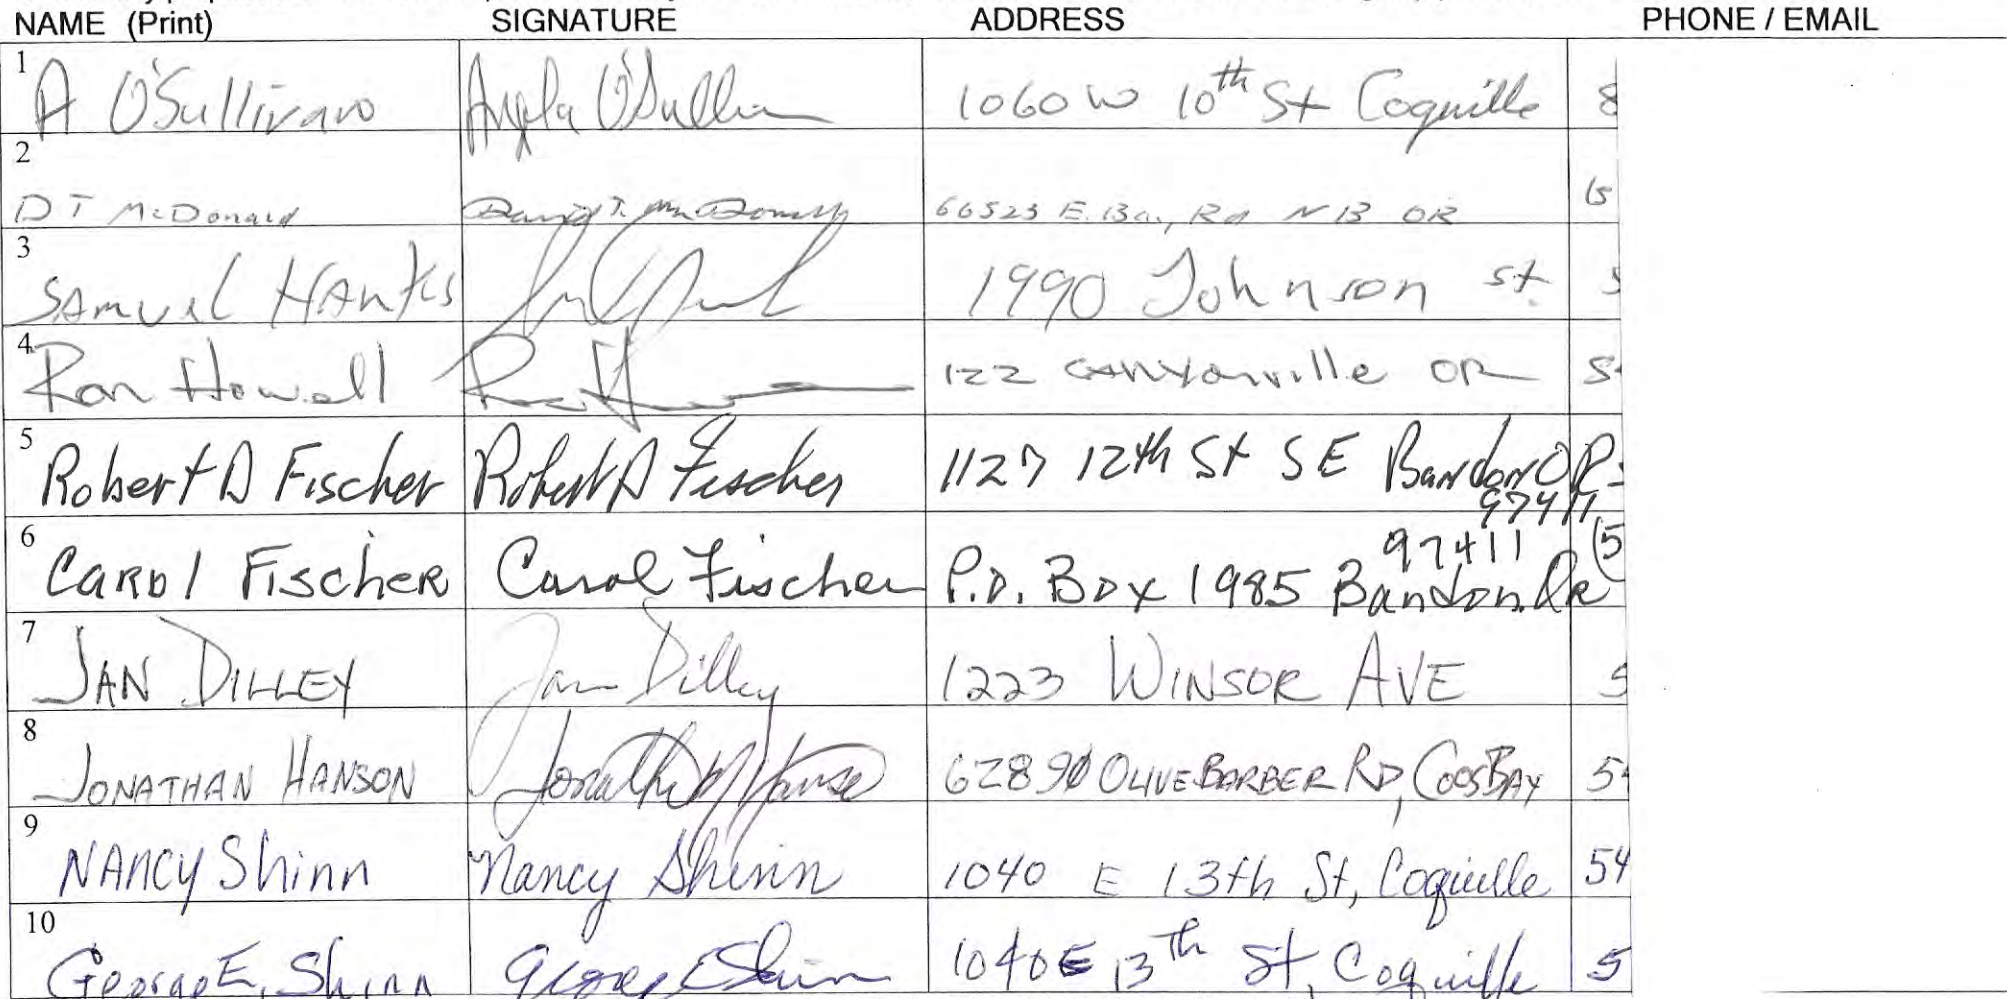 NAME (Print) SIGNATURE ADDRESS PHONE / EMAIL
1 A O'Sullivan Angela O'Sullivan 1060 W 10th St Coquille 8
2 DT McDonald David T. McDonald 66523 E. Bay Rd NB OR
3 SAmuel HAnks 1990 Johnson St. 5
4 Ron Howell Ron 122 CANYonville OR 5
5 Robert D Fischer Robert D Fischer 1127 12th St SE Bandon OR
97411
6 CARol FischeR Carol Fischer P.O. Box 1985 Bandon OR 97411 (5
7 JAN DILLEY Jan Dilley 1223 WINSOR AVE 5
8 JONATHAN HANSON Jonathan M Hanson 62890 OLIVE BARBER RD, COOS BAY 54
9 NANCY Shinn Nancy Shinn 1040 E 13th St, Coquille 54
10 George E. Shinn George E Shinn 1040 E 13th St, Coquille 5